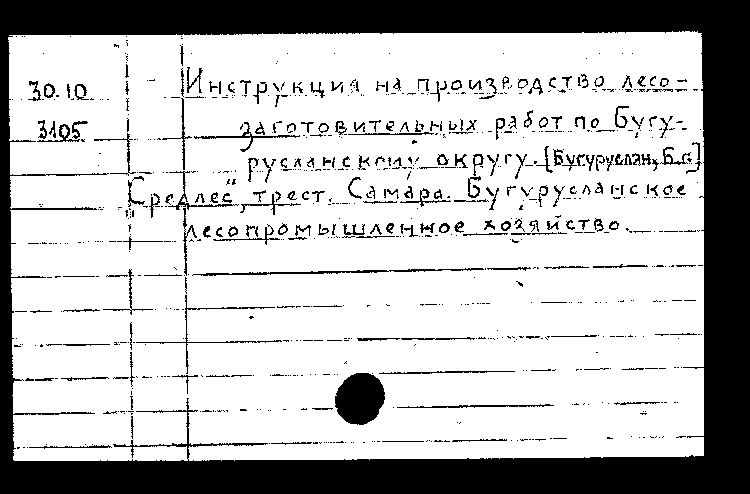 30.10 Инструкция на производство лесо-
3105 заготовительных работ по Бугу-
русланскому округу. [Бугуруслан, Б.г.]
"Средлес", трест. Самара. Бугурусланское
лесопромышленное хозяйство.